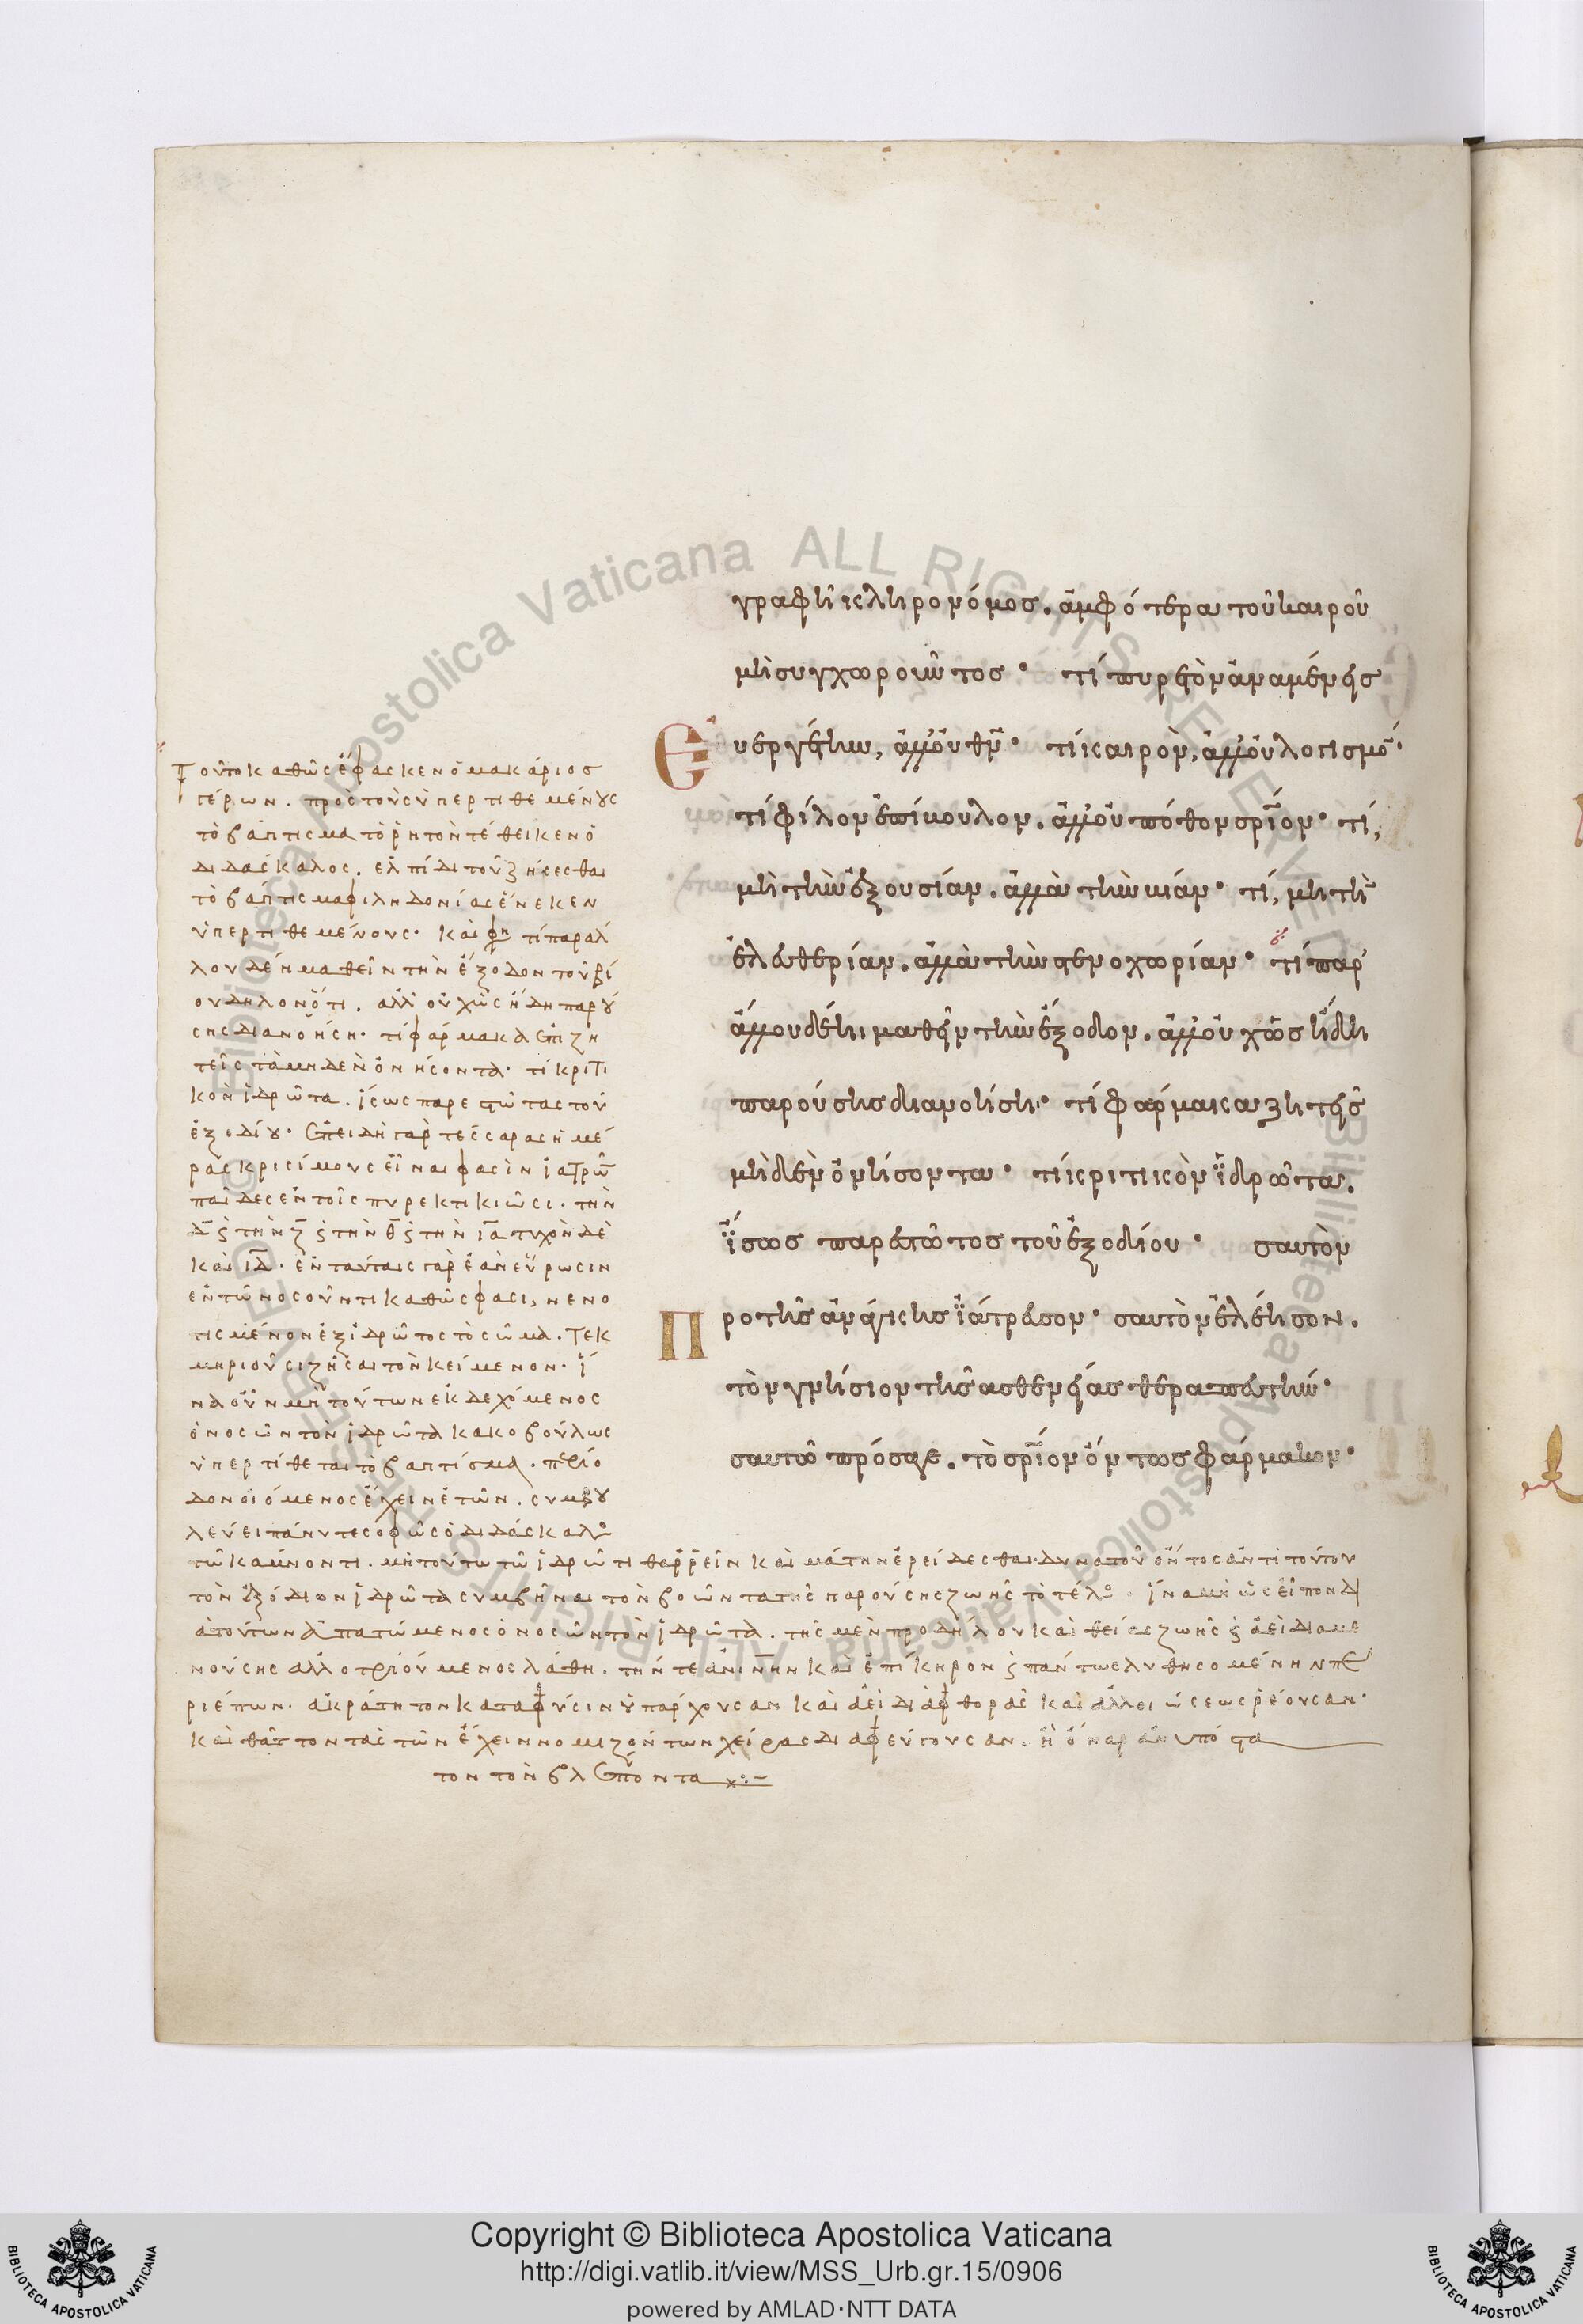 γραφῆ κληρονόμος. ἀμφότερα τοῦ καιροῦ
μὴ συγχωροῦντος· τί πυρετὸν ἀναμένεις
εὐεργέτην, ἀλλ' οὐ θν̅· τί καιρὸν, ἀλλ' οὐ λογισμό·
τί φίλον ἐπίβουλον. ἀλλ' οὐ πόθον σρ̅ιον· τί,
μὴ τὴν ἐξουσίαν. ἀλλὰ τὴν βίαν· τί, μὴ τὴ
ἐλευθερίαν. ἀλλὰ τὴν στενοχωρίαν· τί παρ'
ἄλλου δέη μαθεῖν τὴν ἔξοδον. ἀλλ' οὐχ ὡς ἤδη
παρούσης διανοήση· τί φάρμακα ζητεῖς
μηδὲν ὀνήσοντα· τί κριτικὸν ἱδρῶτα.
ἴσως παρεστῶτος τοῦ ἐξοδίου· σαυτὸν
πρὸ τῆς ἀνάγκης ἰάτρευσον· σαυτὸν ἐλέησον.
τὸν γνήσιον τῆς ἀσθενείας θεραπευτήν·
σαυτῶ πρόσαγε. τὸ σρ̅ιον ὄντως φάρμακον·
Τοῦτο καθὼς ἔφασκεν ὁ μακάριος
γέρων. πρὸς τοὺς ὑπερτιθεμένους
τὸ βάπτισμα τὸ ῥητὸν τέθεικεν ὁ
διδάσκαλος. ἐλπίδι τοῦ ζήσεσθαι
τὸ βάπτισμα φιληδονίας ἕνεκεν
ὑπερτιθεμένους· καί φη τί παρ' ἄλ
λου δέη μαθεῖν τὴν ἔξοδον τοῦ βί
ου δηλονότι. ἀλλ' οὐχ ὡς ἤδη παρού
σης διανοήση· τί φάρμακα ἐπιζη
τεῖς τὰ μηδὲν ὀνήσοντα· τί κριτι
κὸν ἱδρῶτα. ἴσως παρεστῶτας τοῦ
ἐξοδίου· ἐπειδὴ γὰρ τέσσαρας ἡμέ
ρας κρισίμους εἶναι φασὶν ἰατρῶ
παῖδες ἐν τοῖς πυρεκτικιῶσι. τὴν
δ̅ ϛ τὴν ζ̅ ϛ τὴν θ̅ ϛ τὴν ια̅ τυχὸν δὲ
καὶ ιδ̅· ἐν ταύταις γὰρ ἐὰν εὕρωσιν
ἐν τῶ νοσοῦντι καθώς φασι, νενο
τισμένον ἐξ ἱδρῶτος τὸ σῶμα. τεκ
μηριοῦσι ζῆσαι τὸν κείμενον· ἵ
να οὖν μὴ τούτων ἐκδεχόμενος
ὁ νοσῶν τὸν ἱδρῶτα κακοβούλως
ὑπερτίθεται τὸ βάπτισμα. περίο
δον οἰόμενος ἔχειν ἐτῶν. συμβου
λεύει πάνυ τε σοφῶς ὁ διδάσκαλο
τῶ κάμνοντι. μὴ τούτω τῶ ἱδρῶτι θαρρεῖν καὶ μάτην ἐρείδεσθαι. δυνατοῦ ὄντος ἀντὶ τούτου
τὸν ἐξόδιον ἱδρῶτα συμβῆναι τὸν βοῶντα τῆς παρούσης ζωῆς τὸ τέλο. ἵνα μὴ ὡς εἶπον δι
ἀ τούτων ἀπατώμενος ὁ νοσῶν τὸν ἱδρῶτα. τῆς μὲν προδήλου καὶ θείας ζωῆς ϛ ἀεὶ διαμε
νούσης ἀλλοτριούμενος λάθη. τὴν τε ἀνινην καὶ ἐπίκηρον ϛ πάντως λυθησομένην πε
ριέπων. ἀκράτητον κατὰ φύσιν ὑπάρχουσαν καὶ ἀεὶ διὰ φθορᾶς καὶ ἀλλοιώσεως ῥέουσαν·
καὶ θᾶττον τὰς τῶν ἔχειν νομιζόντων χεῖρας διαφεύγουσαν. ἢ ὄναρ ἀνυπόστα
τον τὸν βλέποντα
Copyright © Biblioteca Apostolica Vaticana
http://digi.vatlib.it/view/MSS_Urb.gr.15/0906
powered by AMLAD·NTT DATA